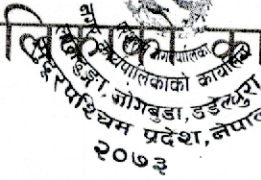 लिकाको का
नगरपालिका
नगर कार्यपालिकाको कार्यालय
जोगबुडा, डडेल्धुरा
सुदूरपश्चिम प्रदेश, नेपाल
२०७३